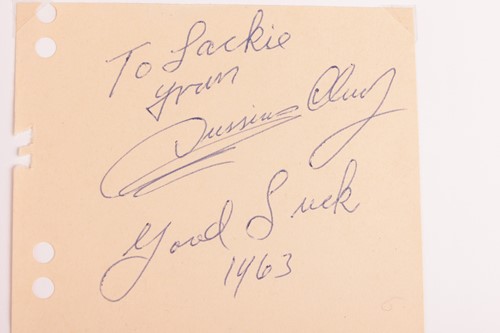 To Lackie
From
Cassius Clay
Good Luck
1963